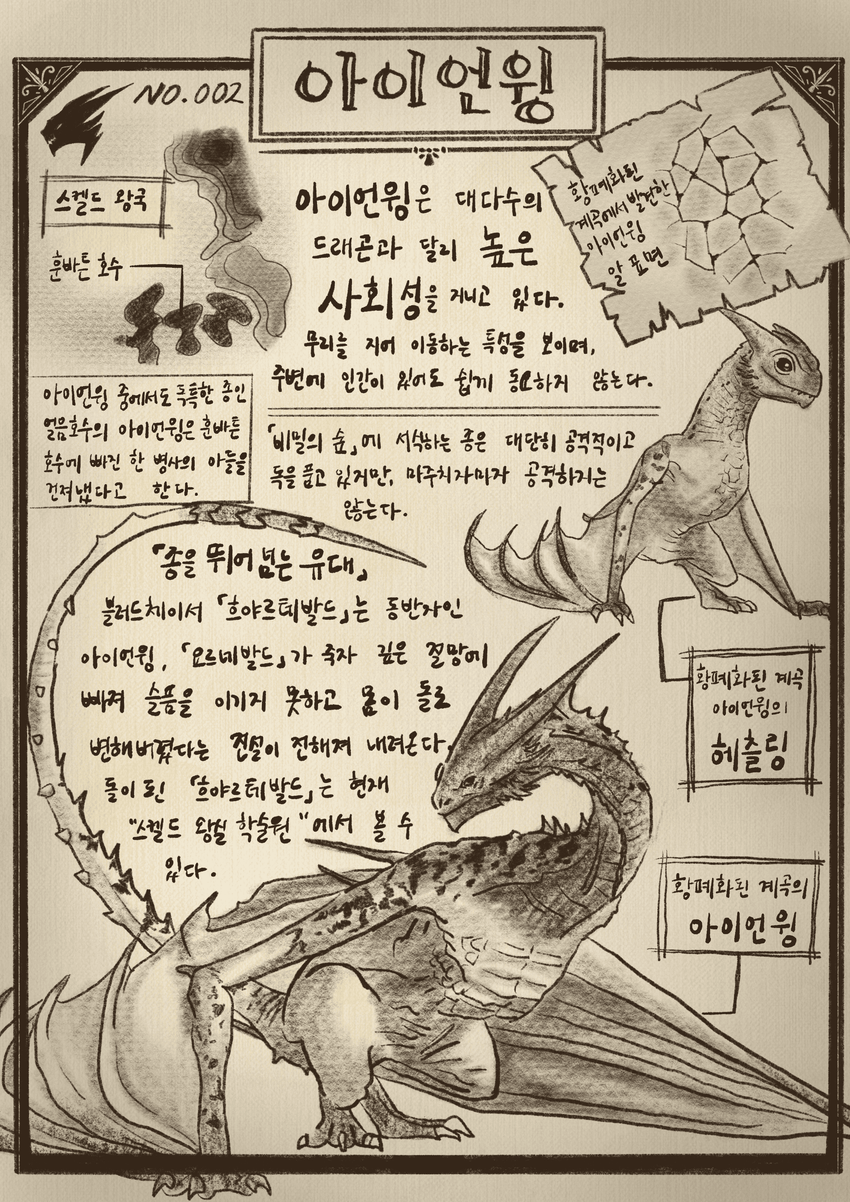 아이언윙
NO.002
스켈드 왕국
훈바튼 호수
아이언윙은 대다수의
드래곤과 달리 높은
사회성을 지니고 있다.
무리를 지어 이동하는 특성을 보이며,
주변에 인간이 있어도 쉽게 동요하지 않는다.
황폐화된
계곡에서 발견한
아이언윙
알 표면
아이언윙 중에서도 독특한 종인
얼음호수의 아이언윙은 훈바튼
호수에 빠진 한 병사의 아들을
건져냈다고 한다.
「비밀의 숲」에 서식하는 종은 대단히 공격적이고
독을 품고 있지만, 마주치자마자 공격하지는
않는다.
「종을 뛰어넘는 유대」
블러드체이서 「흐야르테발드」는 동반자인
아이언윙, 「요르네발드」가 죽자 깊은 절망에
빠져 슬픔을 이기지 못하고 몸이 돌로
변해버렸다는 전설이 전해져 내려온다.
돌이 된 「흐야르테발드」는 현재
"스켈드 왕실 학술원"에서 볼 수
있다.
황폐화된 계곡
아이언윙의
헤츨링
황폐화된 계곡의
아이언윙